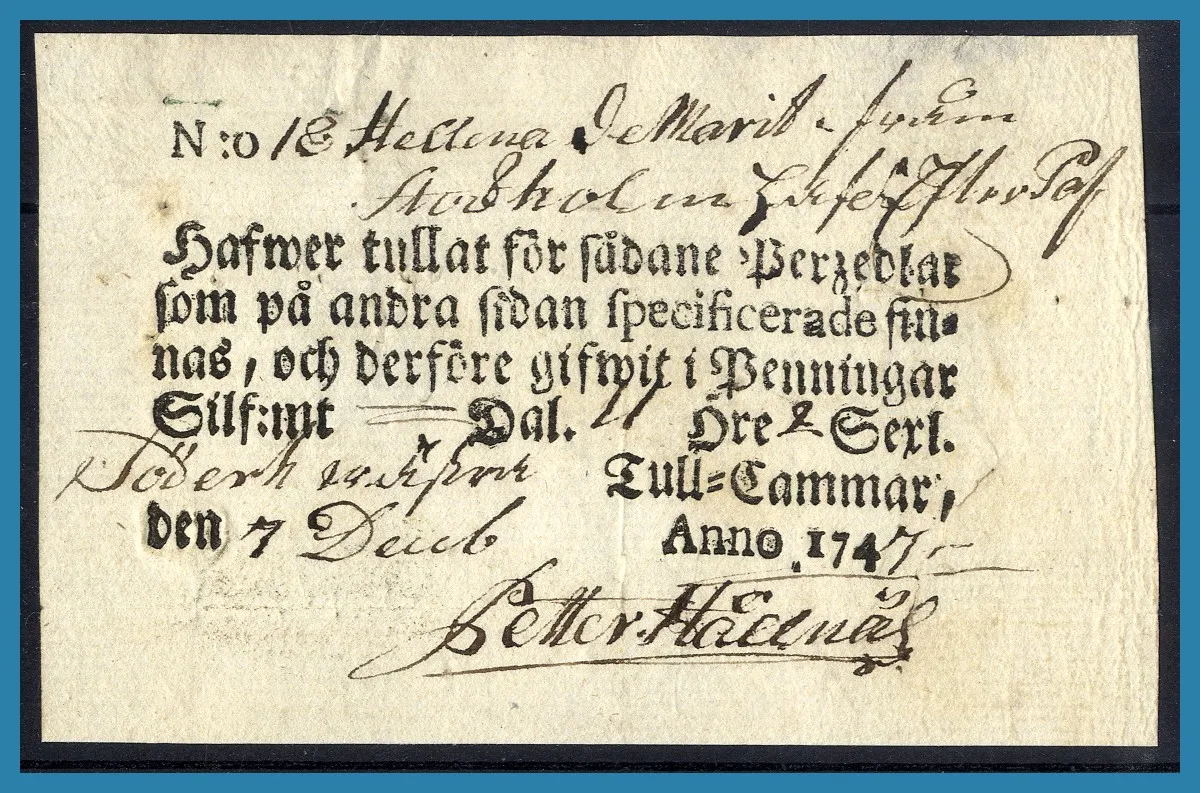 N:o 18 Hellena De Marit
Stockholm Efter Pas
Hafwer tullat för sådane Perzedlar
som på andra sidan specificerade fin-
nas, och derföre gifwit i Penningar
Silf:mt — Dal. 11 Öre 2 Sexl.
Söderh Tull-Cammar,
den 7 Decemb Anno 1747
Petter